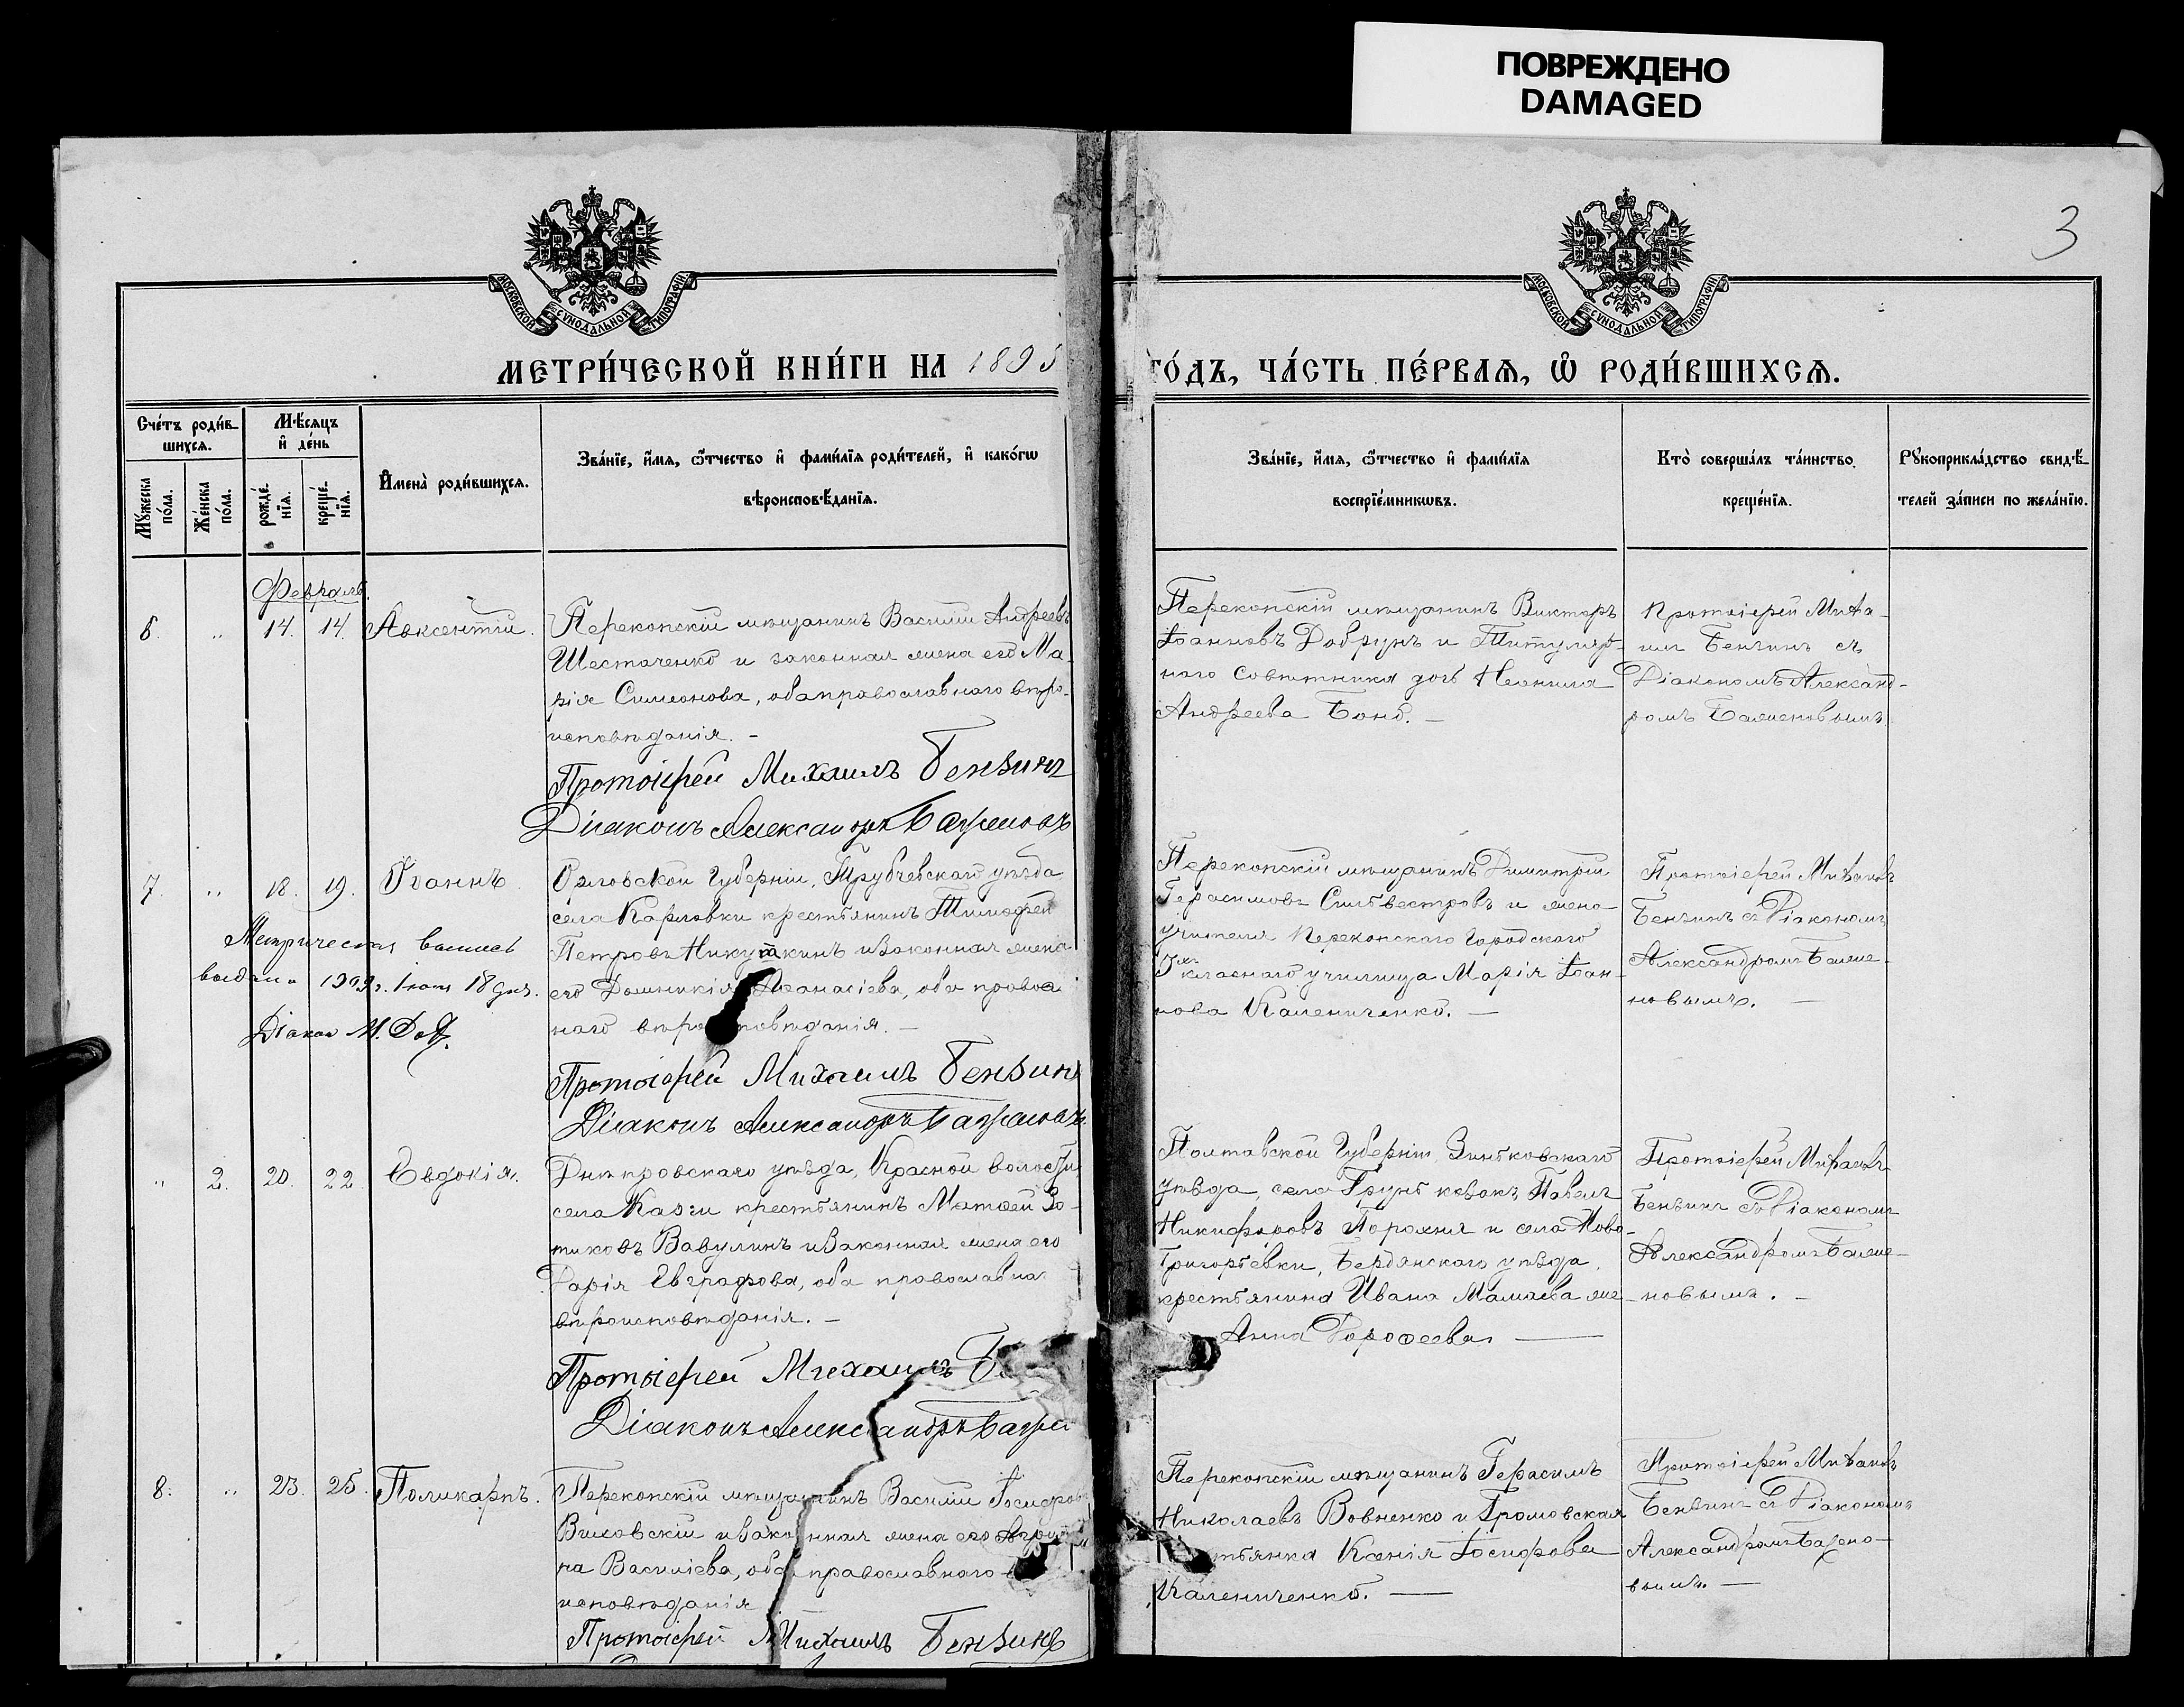 ПОВРЕЖДЕНО
DAMAGED
3
МОСКОВСКОЙ СѴНОДАЛЬНОЙ ТИПОГРАФІИ
МОСКОВСКОЙ СѴНОДАЛЬНОЙ ТИПОГРАФІИ
МЕТРИ́ЧЕСКОЙ КНИ́ГИ НА 1895
ГО́ДЪ, ЧА́СТЬ ПЕ́РВАЯ, Ѡ РОДИ́ВШИХСЯ.
Сче́тъ роди́в-
шихся.
Мѣ́сяцъ
и де́нь
Мꙋ́жеска
по́ла.
Же́нска
по́ла.
рожде́-
нїя.
креще́-
нїя.
Имена̀ роди́вшихся.
Зва́нїе, и́мя, ѻ҆́тчество и фами́лїя роди́телей, и како́гѡ
вѣроисповѣ́данїя.
Зва́нїе, и́мя, ѻ҆́тчество и фами́лїя
воспрїе́мникѡвъ.
Кто̀ соверша́лъ та́инство
креще́нїя.
Рꙋкоприкла́дство свидѣ́-
телей за́писи по жела́нїю.
Февраль.
6. " 14. 14. Авксентій.
Перекопскій мѣщанинъ Василій Андреевъ
Шестаченко и законная жена его Ма-
рія Симеонова, оба православнаго вѣро-
исповѣданія. -
Протоіерей Михаилъ Бензинъ
Діаконъ Александръ Баженовъ
Перекопскій мѣщанинъ Викторъ
Іоанновъ Добрунъ и Титуляр-
наго Совѣтника дочь Неонила
Андреева Бонб. -
Протоіерей Миха-
илъ Бензинъ съ
Діакономъ Александ-
ромъ Баженовымъ
7. " 18. 19. Іоаннъ.
Орловской Губерніи, Трубчевскаго уѣзда
села Карловки крестьянинъ Тимофей
Петровъ Никуткинъ и законная жена
его Аѳанасіева, оба правосл
наго вѣро повѣданія. -
Протоіерей Михаилъ Бензинъ
Діаконъ Александръ Баженовъ
Метрическая выпись
выдана 1909 г. 18 дня.
Діакон М.
Перекопскій мѣщанинъ Димитрій
Герасимовъ Сильвестровъ и жена
учителя Перекопскаго Городского
класнаго училища Марія Іоан-
нова Калениченко. -
Протоіерей Михаилъ
Бензинъ съ Діакономъ
Александромъ Баже-
новымъ. -
" 2. 20. 22. Евдокія.
Днѣпровскаго уѣзда, Красной волости,
села Казги крестьянинъ Матѳей Зо-
тиковъ Вавулинъ и законная жена его
Дарія Евграфова, оба православна
вѣроисповѣданія. -
Протоіерей Михаилъ Б
Діаконъ Александръ Баже
Полтавской Губерніи, Зиньковскаго
уѣзда, села Грунь козакъ Павелъ
Никифоровъ Порохня и села Ново-
Григорьевки, Бердянскаго уѣзда,
крестьянина Ивана Мамаева же-
Анна Дорофеева. -
Протоіерей Михаилъ
Бензинъ съ Діакономъ
Александромъ Баже-
новымъ. -
8. " 23. 25. Поликарпъ.
Перекопскій мѣщанинъ Василій Іосифовъ
Виховскій и законная жена его Агрип
на Василіева, оба православнаго
исповѣданія
Протоіерей Михаилъ Бензинъ
Перекопскій мѣщанинъ Герасимъ
Николаевъ Вовненко и Громовская
тьянка Ксенія Іосифова
Калениченко. -
Протоіерей Михаилъ
Бензинъ съ Діакономъ
Александромъ Бажено-
вымъ. -